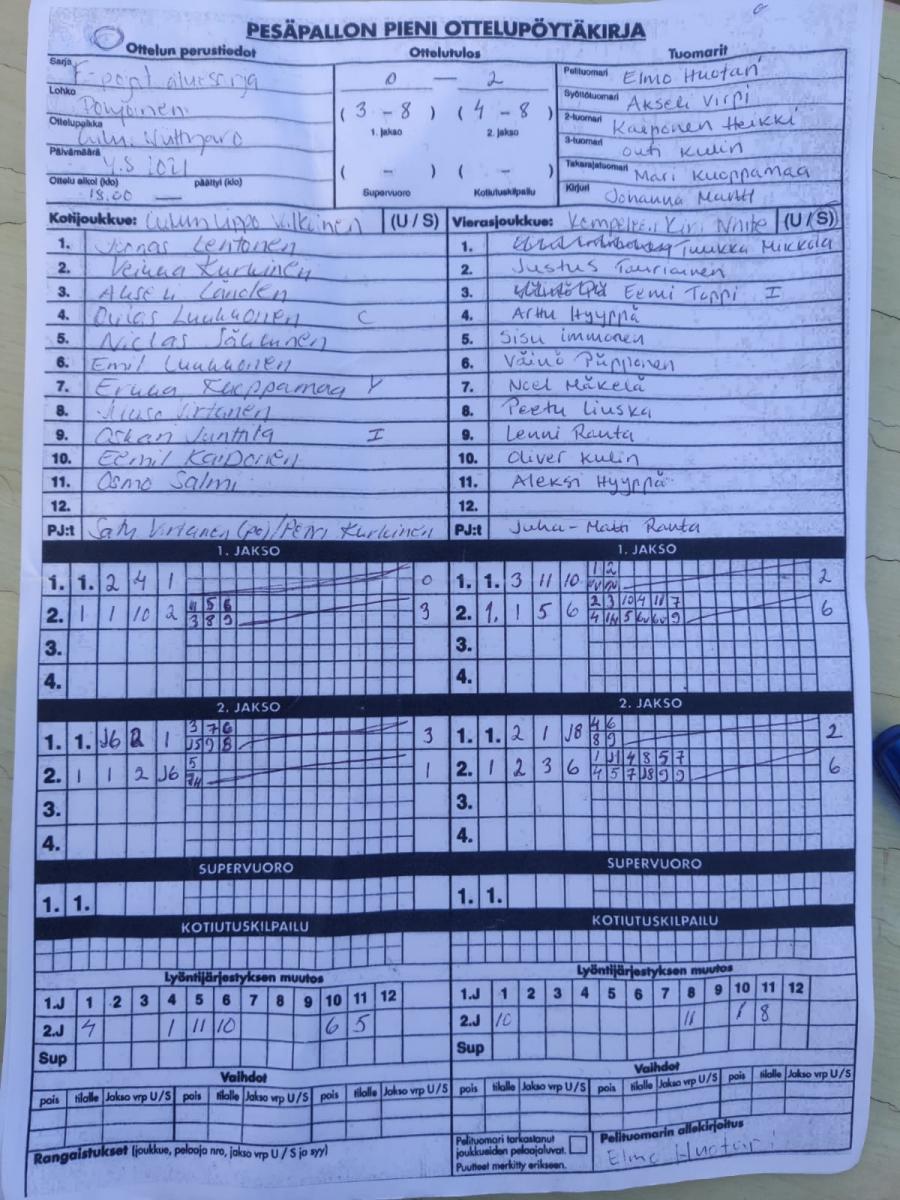 PESÄPALLON PIENI OTTELUPÖYTÄKIRJA
Ottelun perustiedot
Ottelutulos
Tuomarit
Sarja F-pojat aluesarja
Lohko Pohjoinen
Ottelupaikka Oulu,
Päivämäärä 4.8 2021
Ottelu alkoi (klo) päättyi (klo)
18.00 —
0 — 2
( 3 - 8 ) ( 4 - 8 )
1. jakso 2. jakso
( - ) ( - )
Supervuoro Kotiutuskilpailu
Pelituomari Elmo Huotari
Syöttötuomari Akseli Virpi
2-tuomari Karponen Heikki
3-tuomari Outi Kulin
Takarajatuomari Mari Kuoppamaa
Kirjuri Johanna Martti
Kotijoukkue: Oulun Lippo (U / S)
1. Joonas Lehtonen
2. Veikka Kurkinen
3. Akseli
4. Luukkonen C
5. Niclas
6. Emil Luukkonen
7. Kuoppamaa Y
8. Virtanen
9. Oskari Junttila I
10. Eemil Karponen
11. Osmo Salmi
12.
PJ:t Satu Virtanen (pe)/Petri Kurkinen
Vierasjoukkue: Kempeleen Kiri White (U / S)
1. Tuukka Mikkola
2. Justus Tauriainen
3. Eemi Toppi I
4. Arttu Hyyppä
5. Sisu immonen
6. Väinö Piipponen
7. Noel Mäkelä
8. Peetu Liuska
9. Lenni Ranta
10. Oliver Kulin
11. Aleksi Hyyppä
12.
PJ:t Juha-Matti Ranta
1. JAKSO
1. 1. 2 4 1 0
2. 1 1 10 2 4 5 6 3
3 8 9
3.
4.
1. JAKSO
1. 1. 3 11 10 1 2 2
2. 1. 1 5 6 2 3 10 4 11 7 6
3.
4.
2. JAKSO
1. 1. J6 2 1 3 7 6 3
J5 9 8
2. 1 1 2 J6 5 1
3.
4.
2. JAKSO
1. 1. 2 1 J8 4 6 2
8 9
2. 1 2 3 6 1 J1 4 8 5 7 6
4 5 7 J8 9 9
3.
4.
SUPERVUORO
1. 1.
SUPERVUORO
1. 1.
KOTIUTUSKILPAILU
KOTIUTUSKILPAILU
Lyöntijärjestyksen muutos
1.J 1 2 3 4 5 6 7 8 9 10 11 12
2.J 4 1 11 10 6 5
Sup
Lyöntijärjestyksen muutos
1.J 1 2 3 4 5 6 7 8 9 10 11 12
2.J 10 11 1 8
Sup
Vaihdot
pois tilalle Jakso vrp U/S pois tilalle Jakso vrp U/S pois tilalle Jakso vrp U/S
Vaihdot
pois tilalle Jakso vrp U/S pois tilalle Jakso vrp U/S pois tilalle Jakso vrp U/S
Rangaistukset (joukkue, pelaaja nro, jakso vrp U / S ja syy)
Pelituomari tarkastanut
joukkueiden pelaajaluvat.
Puutteet merkitty erikseen.
Pelituomarin allekirjoitus
Elmo Huotari